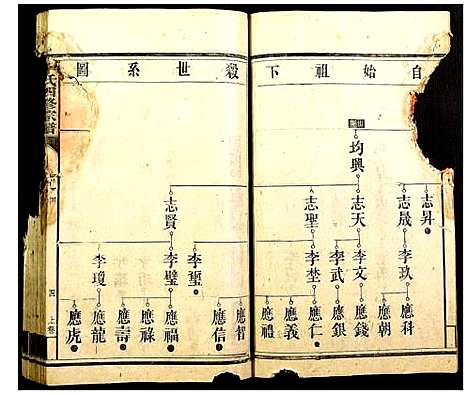 自始祖下殺世系圖
均興
志昇 志晟 志天 志聖 志賢
李玖 李文 李武 李埜 李璽 李璧 李瓊
應科 應朝 應錢 應銀 應仁 應義 應禮 應智 應信 應福 應祿 應壽 應龍 應虎
氏四修宗譜
四 上卷